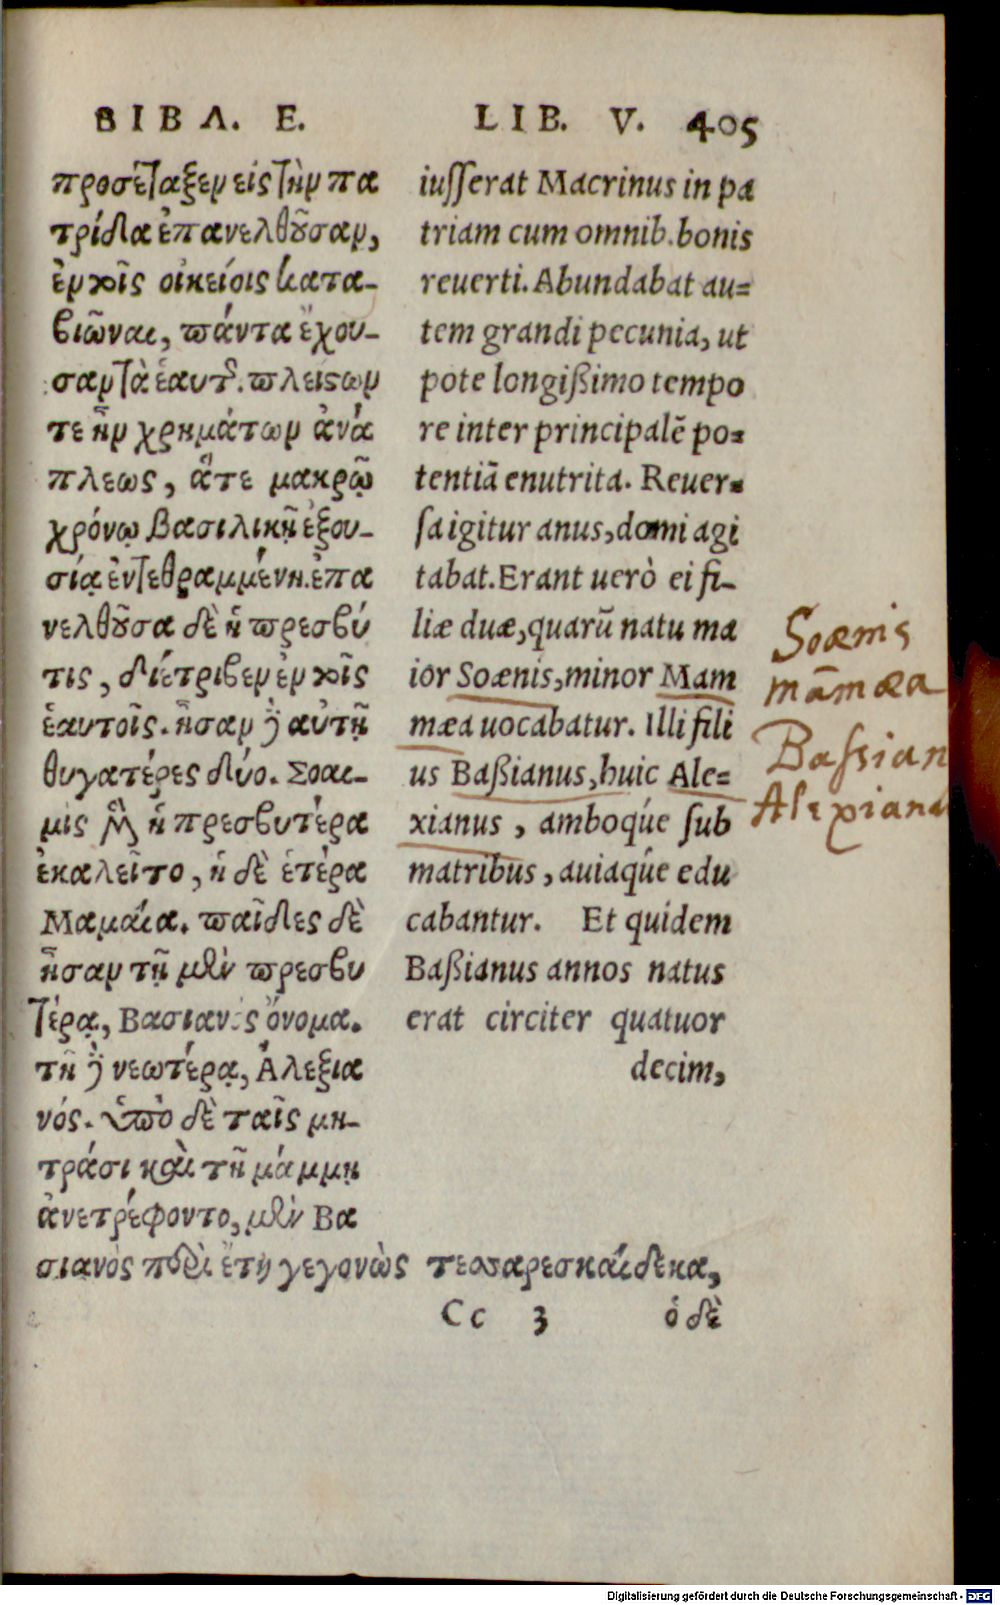 ΒΙΒΛ. Ε.
προσέταξεν εἰς τὴν πα
τρίδα ἐπανελθοῦσαν,
ἐν τοῖς οἰκείοις κατα-
βιῶναι, πάντα ἔχου-
σαν τὰ ἑαυτῆς. πλείστων
τε ἦν χρημάτων ἀνά
πλεως, ἅτε μακρῷ
χρόνῳ βασιλικῇ ἐξου-
σίᾳ ἐντεθραμμένη. ἐπα
νελθοῦσα δὲ ἡ πρεσβύ
τις, διέτριβεν ἐν τοῖς
ἑαυτοῖς. ἦσαν δὲ αὐτῇ
θυγατέρες δύο. Σοαι-
μὶς μὲν ἡ πρεσβυτέρα
ἐκαλεῖτο, ἡ δὲ ἑτέρα
Μαμαία. παῖδες δὲ
ἦσαν τῇ μὲν πρεσβυ
τέρᾳ, Βασιανὸς ὄνομα.
τῇ δὲ νεωτέρᾳ, Ἀλεξια
νός. ὑπὸ δὲ ταῖς μη-
τράσι καὶ τῇ μάμμῃ
ἀνετρέφοντο, μὲν Βα
σιανὸς περὶ ἔτη γεγονὼς τεσσαρεσκαίδεκα,
LIB. V. 405
iusserat Macrinus in pa
triam cum omnib. bonis
reuerti. Abundabat au=
tem grandi pecunia, ut
pote longißimo tempo
re inter principalẽ po=
tentiã enutrita. Reuer=
sa igitur anus, domi agi
tabat. Erant uerò ei fi-
liæ duæ, quarũ natu ma
ior Soænis, minor Mam
mæa uocabatur. Illi fili
us Baßianus, huic Ale=
xianus, amboq́ue sub
matribus, auiaq́ue edu
cabantur. Et quidem
Baßianus annos natus
erat circiter quatuor
decim,
Cc 3 ὁ δὲ
Soænis
mãmæa
Bassian
Alexianu
Digitalisierung gefördert durch die Deutsche Forschungsgemeinschaft - DFG